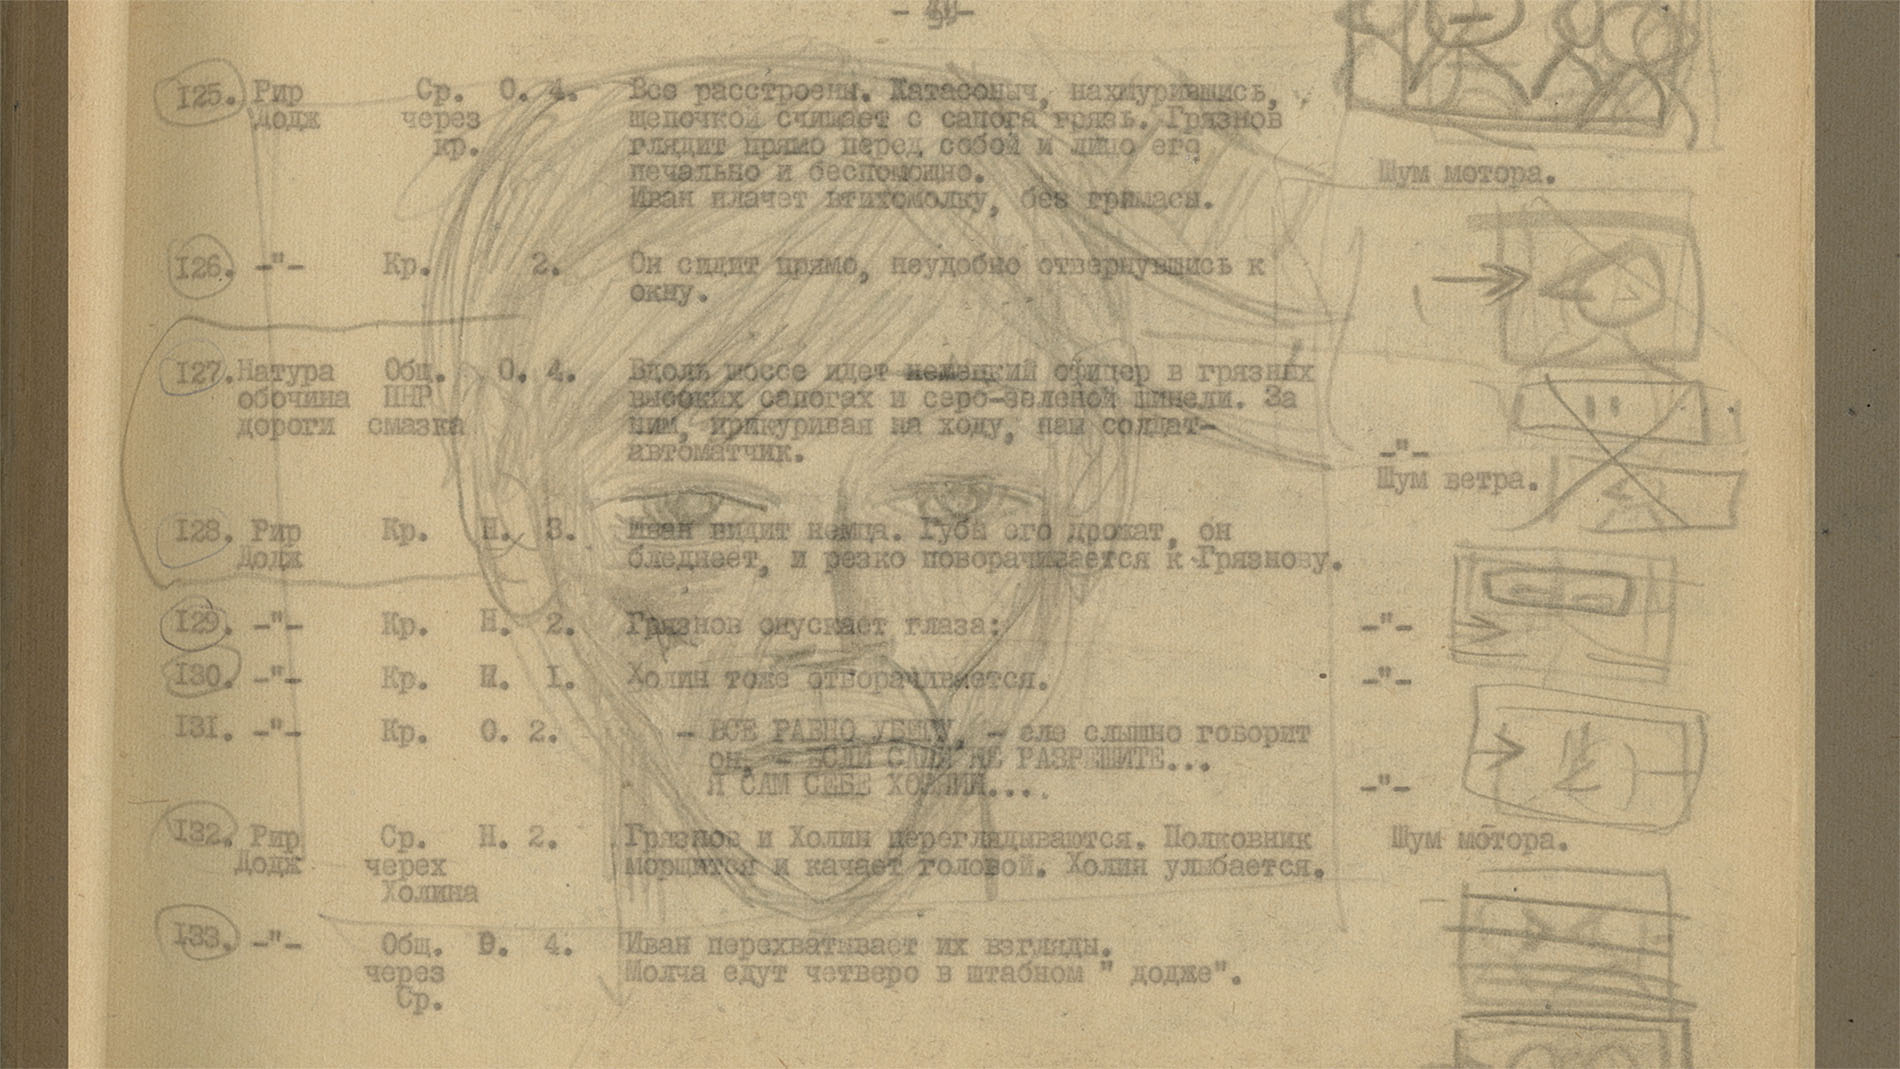 125. Рир Ср. О. 4. Все расстроены. Катасоныч, нахмурившись,
Додж через щепочкой счищает с сапога грязь. Грязнов
кр. глядит прямо перед собой и лицо его
печально и беспомощно. Шум мотора.
Иван плачет втихомолку, без гримасы.
126. -"- Кр. 2. Он сидит прямо, неудобно отвернувшись к
окну.
127. Натура Общ. О. 4. Вдоль шоссе идет немецкий офицер в грязных
обочина ПНР высоких сапогах и серо-зеленой шинели. За
дороги смазка ним, прикуривая на ходу, наш солдат-
автоматчик. -"-
Шум ветра.
128. Рир Кр. Н. 3. Иван видит немца. Губы его дрожат, он
Додж бледнеет, и резко поворачивается к Грязнову.
129. -"- Кр. Н. 2. Грязнов опускает глаза: -"-
130. -"- Кр. Н. 1. Холин тоже отворачивается. -"-
131. -"- Кр. О. 2. - ВСЕ РАВНО УБЕГУ, - еле слышно говорит
он, - ЕСЛИ НЕ РАЗРЕШИТЕ...
Я САМ СЕБЕ ХОЗЯИН... -"-
132. Рир Ср. Н. 2. Грязнов и Холин переглядываются. Полковник Шум мотора.
Додж черех морщится и качает головой. Холин улыбается.
Холина
133. -"- Общ. 4. Иван перехватывает их взгляды.
через Молча едут четверо в штабном " додже".
Ср.